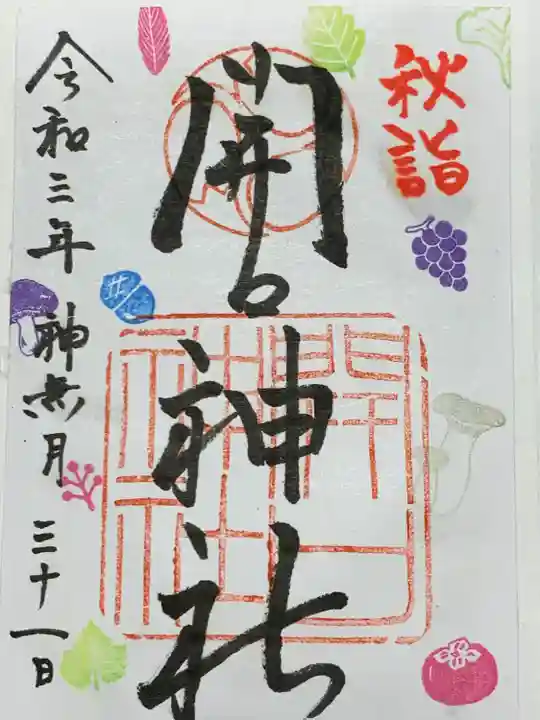 秋詣
開口神社
令和三年 神無月 三十一日
開口
神社